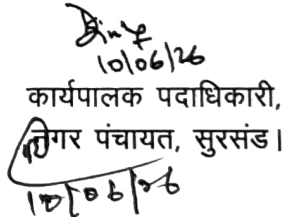 10/06/26
कार्यपालक पदाधिकारी,
नगर पंचायत, सुरसंड।
10/06/26